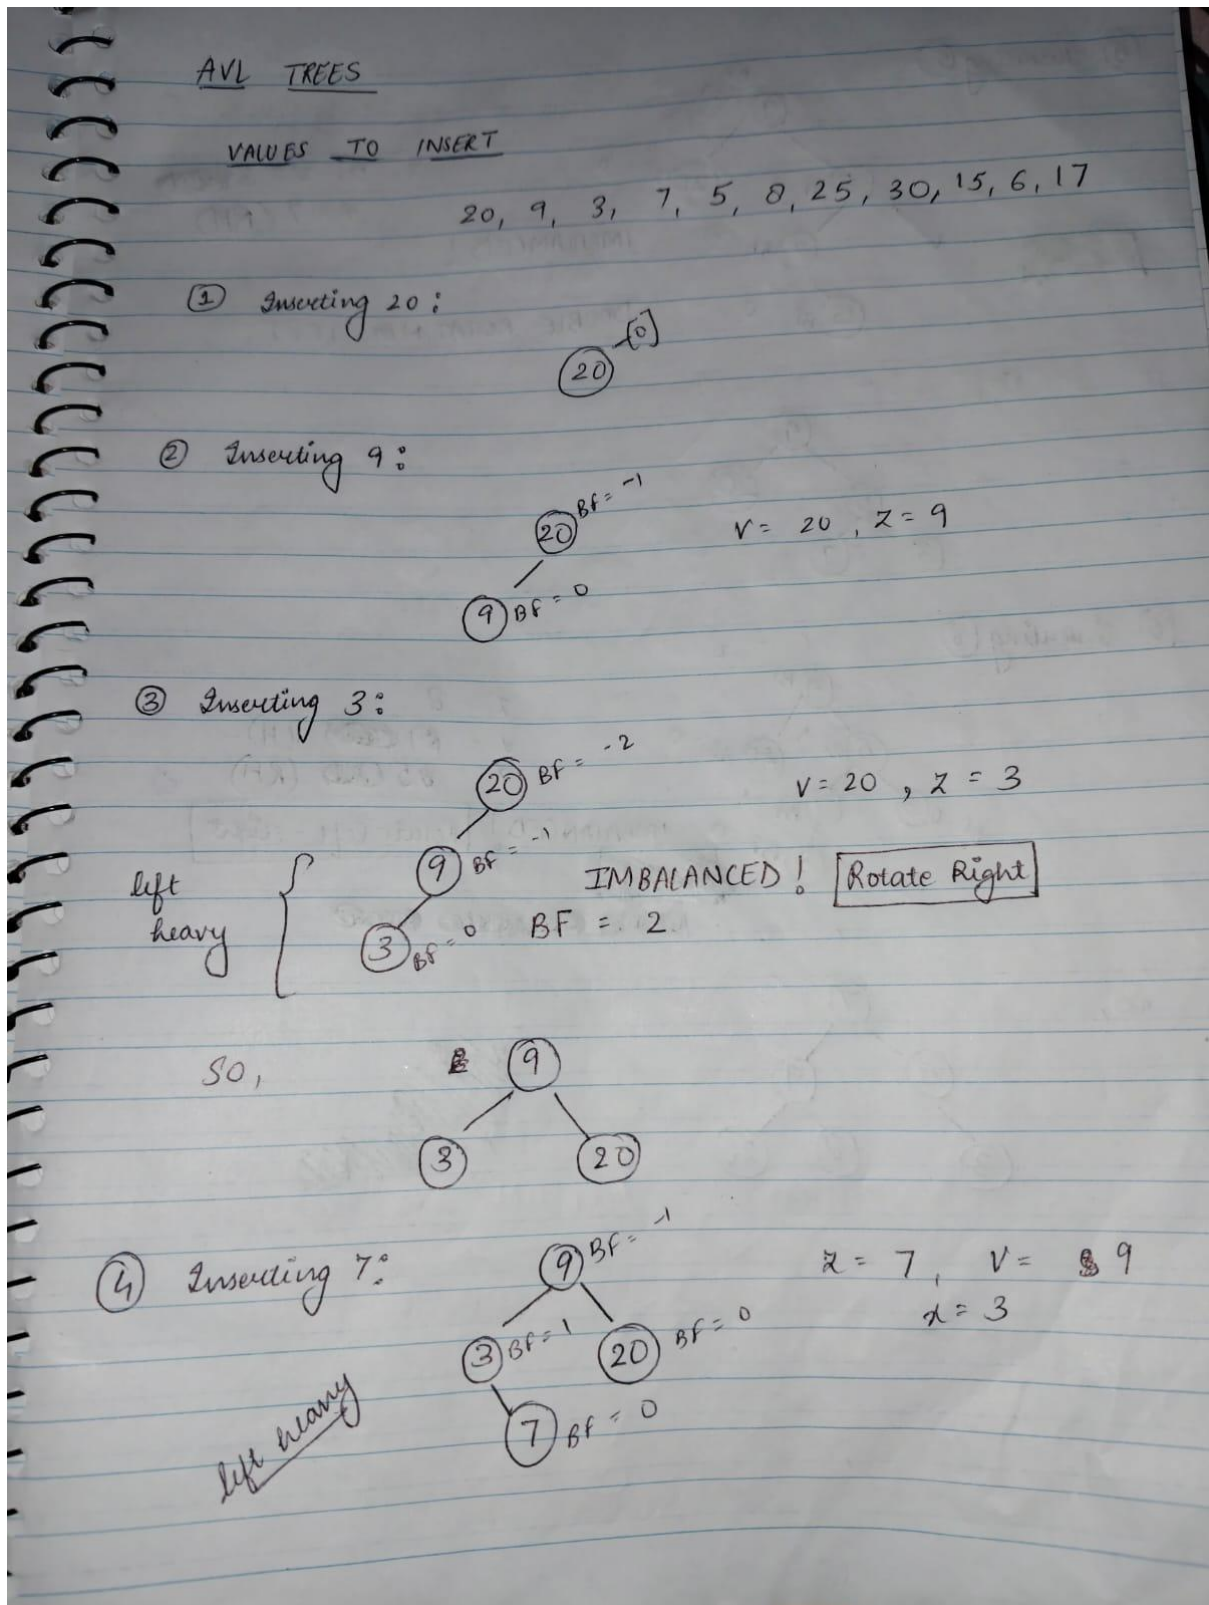 AVL TREES
VALUES TO INSERT
20, 9, 3, 7, 5, 8, 25, 30, 15, 6, 17
① Inserting 20:
[0]
20
② Inserting 9:
20 BF = -1
V = 20, Z = 9
9 BF = 0
③ Inserting 3:
20 BF = -2
V = 20, Z = 3
9 BF = -1
left
heavy
IMBALANCED! Rotate Right
3 BF = 0 BF = 2
SO,
9
3 20
④ Inserting 7:
9 BF = -1
Z = 7, V = 9
x = 3
3 BF = 1 20 BF = 0
7 BF = 0
left heavy